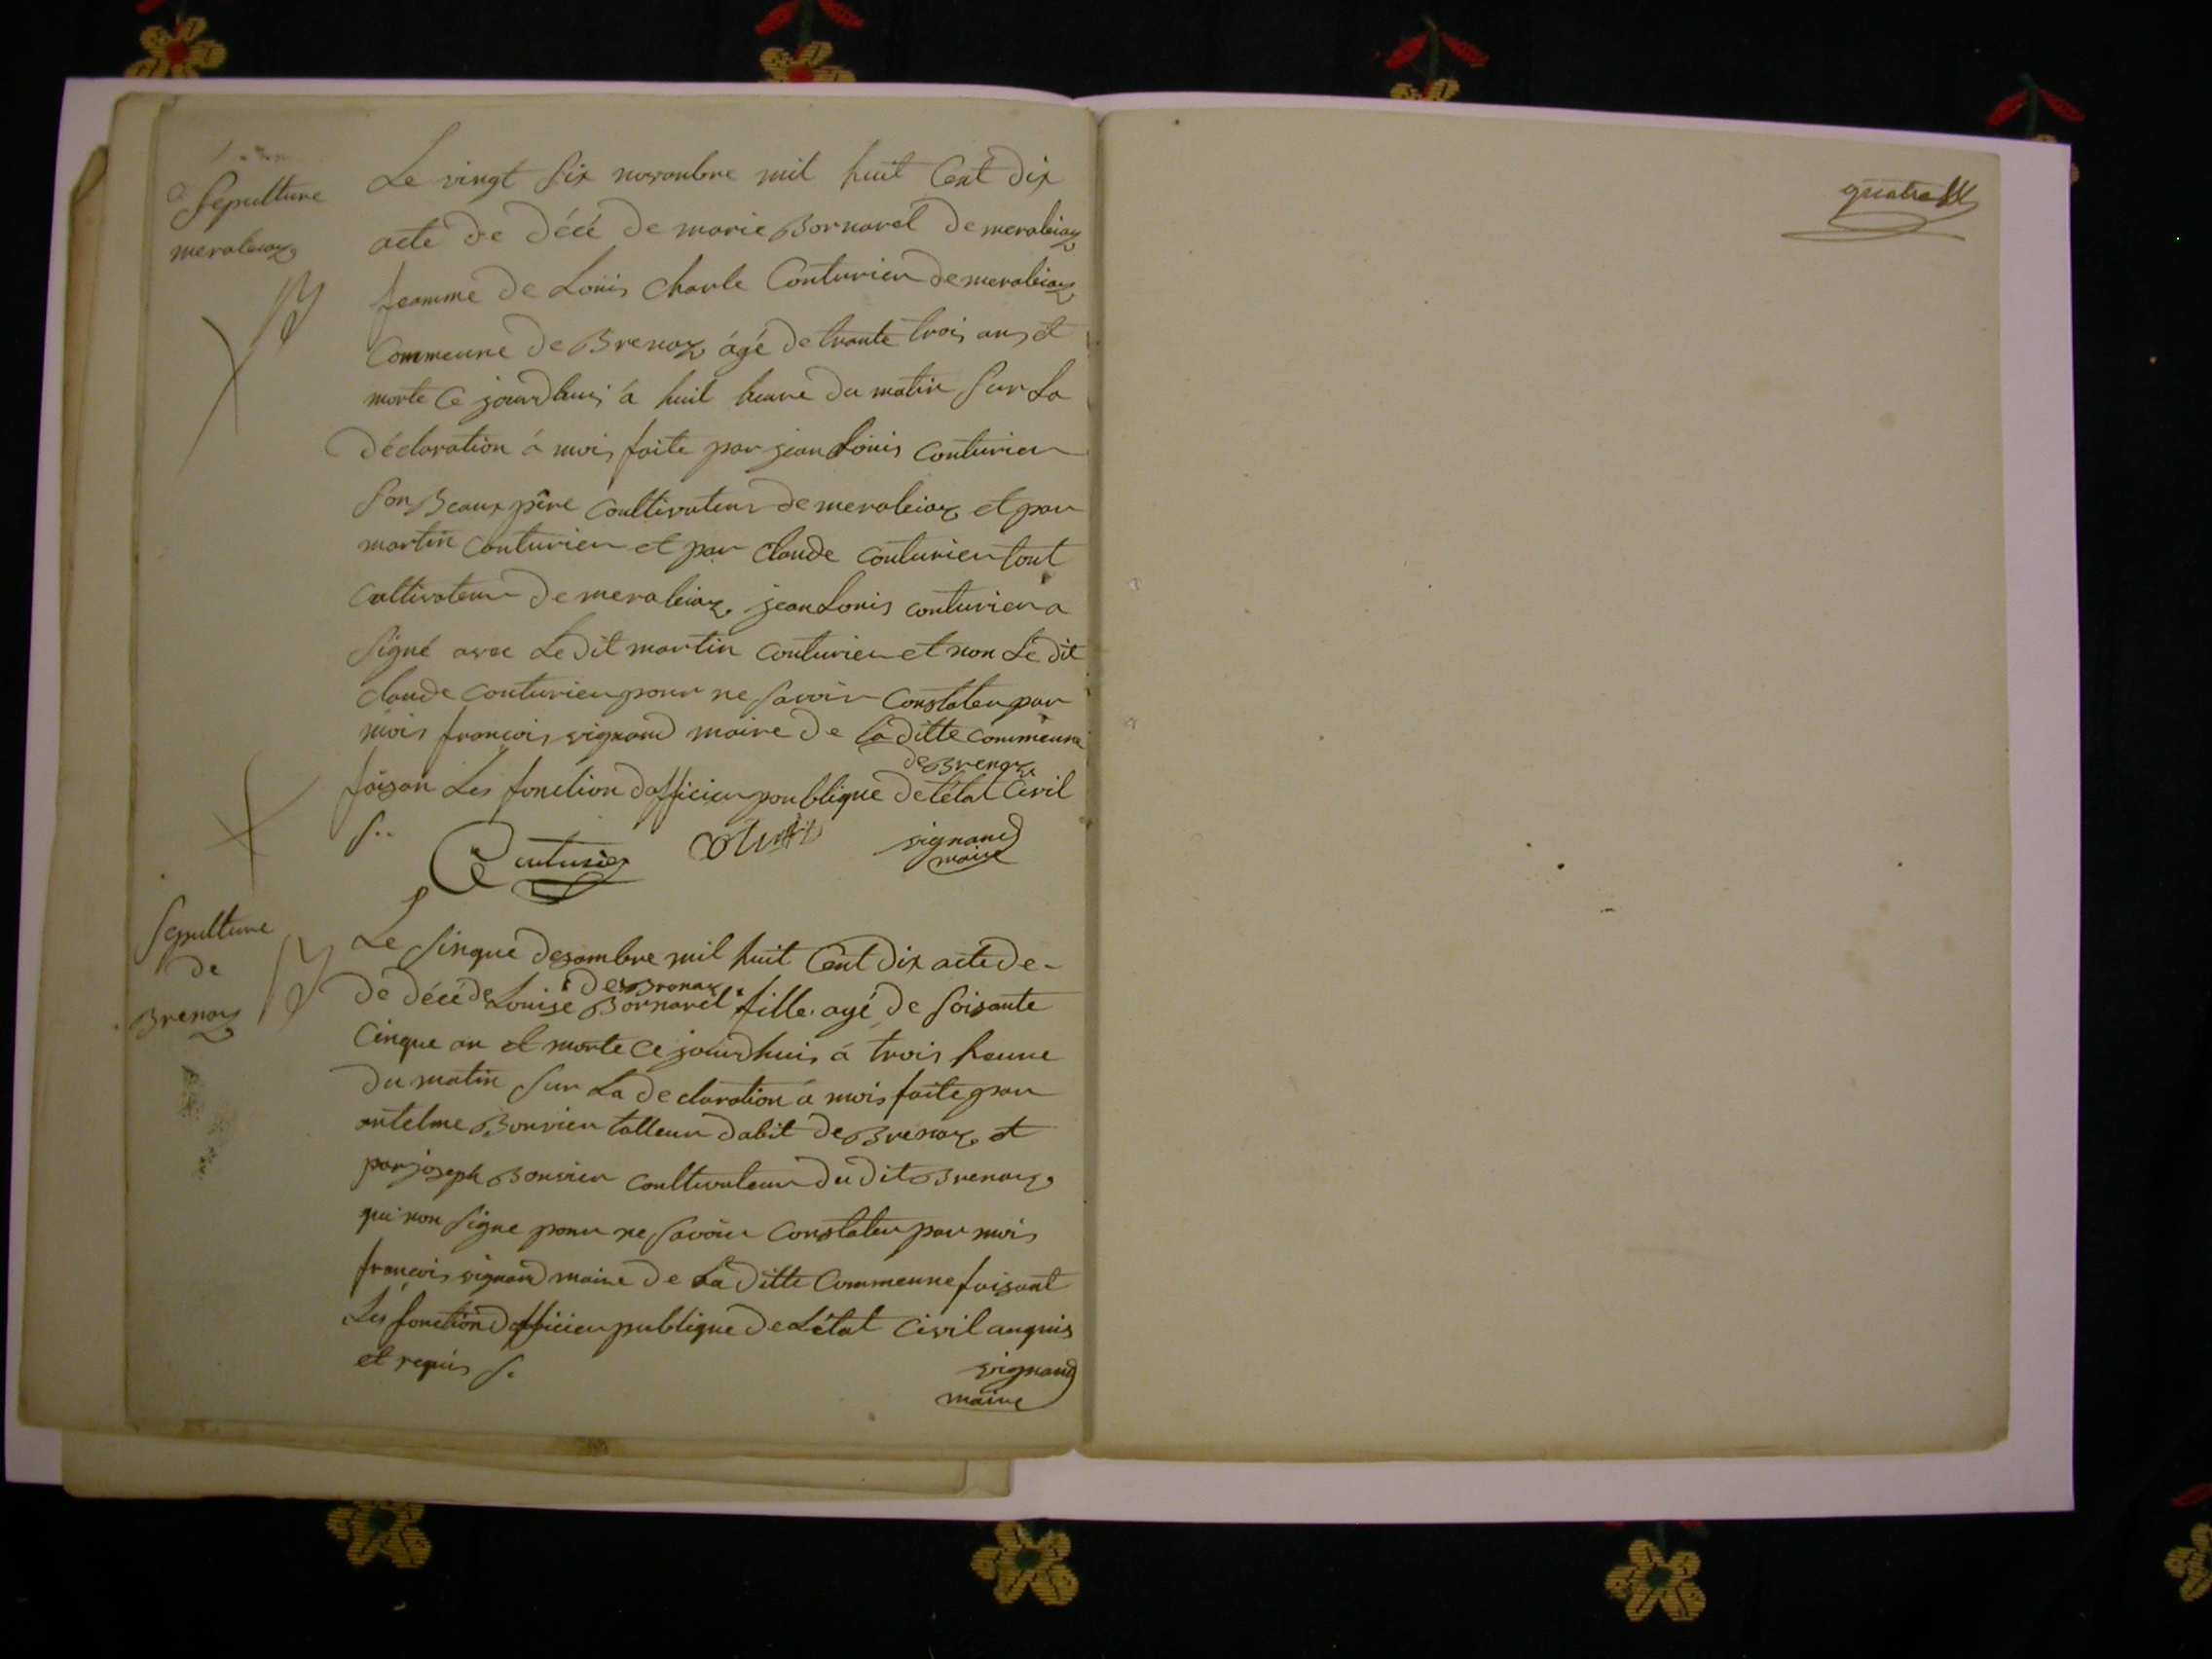 Sepulture
meraleiaz
Le vingt six novoanbre mil huit Cent dix
acte de décé de marie Bornarel de meraleiaz
feamme de Loüis charle Conturier de meraleiaz
Commeune de Brenaz âgé de trante trois ans et
morte Ce jourdhuis à huit heure du matin Sur La
déclaration à mois faite par jean Louis Conturier
Son Beaux père Coultivateur de meraleiaz et par
martin Conturier et par Claude Conturier tout
Cultivateur de meraleiaz. jean Louis conturier a
Signé avec Le dit martin Conturier et non Le dit
claude Conturier pour ne Savoir Constater par
mois françois vignand maire de La ditte commeune
de Brenaz
faisan Les fonction dofficier poublique de létat Civil
S..
Couturier
vignand
maire
Sepulture
de
Brenaz
Le Sinque desambre mil huit Cent dix acte de-
de Brenaz
de décé de Louise Bornarel fille. agé de Soisante
Cinque an et morte Ce jourdhuis à trois heure
du matin Sur La declaration à mois faite par
antelme Bonvier talleur dabit de Brenaz. et
par joseph Bonvier Coultivateur du dit Brenaz.
qui non Signe pour ne Savoir Constater par mois
françois vignand maire de La ditte Commeune faisant
Les fonction dofficier publique de Létat Civil anquis
et requis S.
vignand
maire
quatre